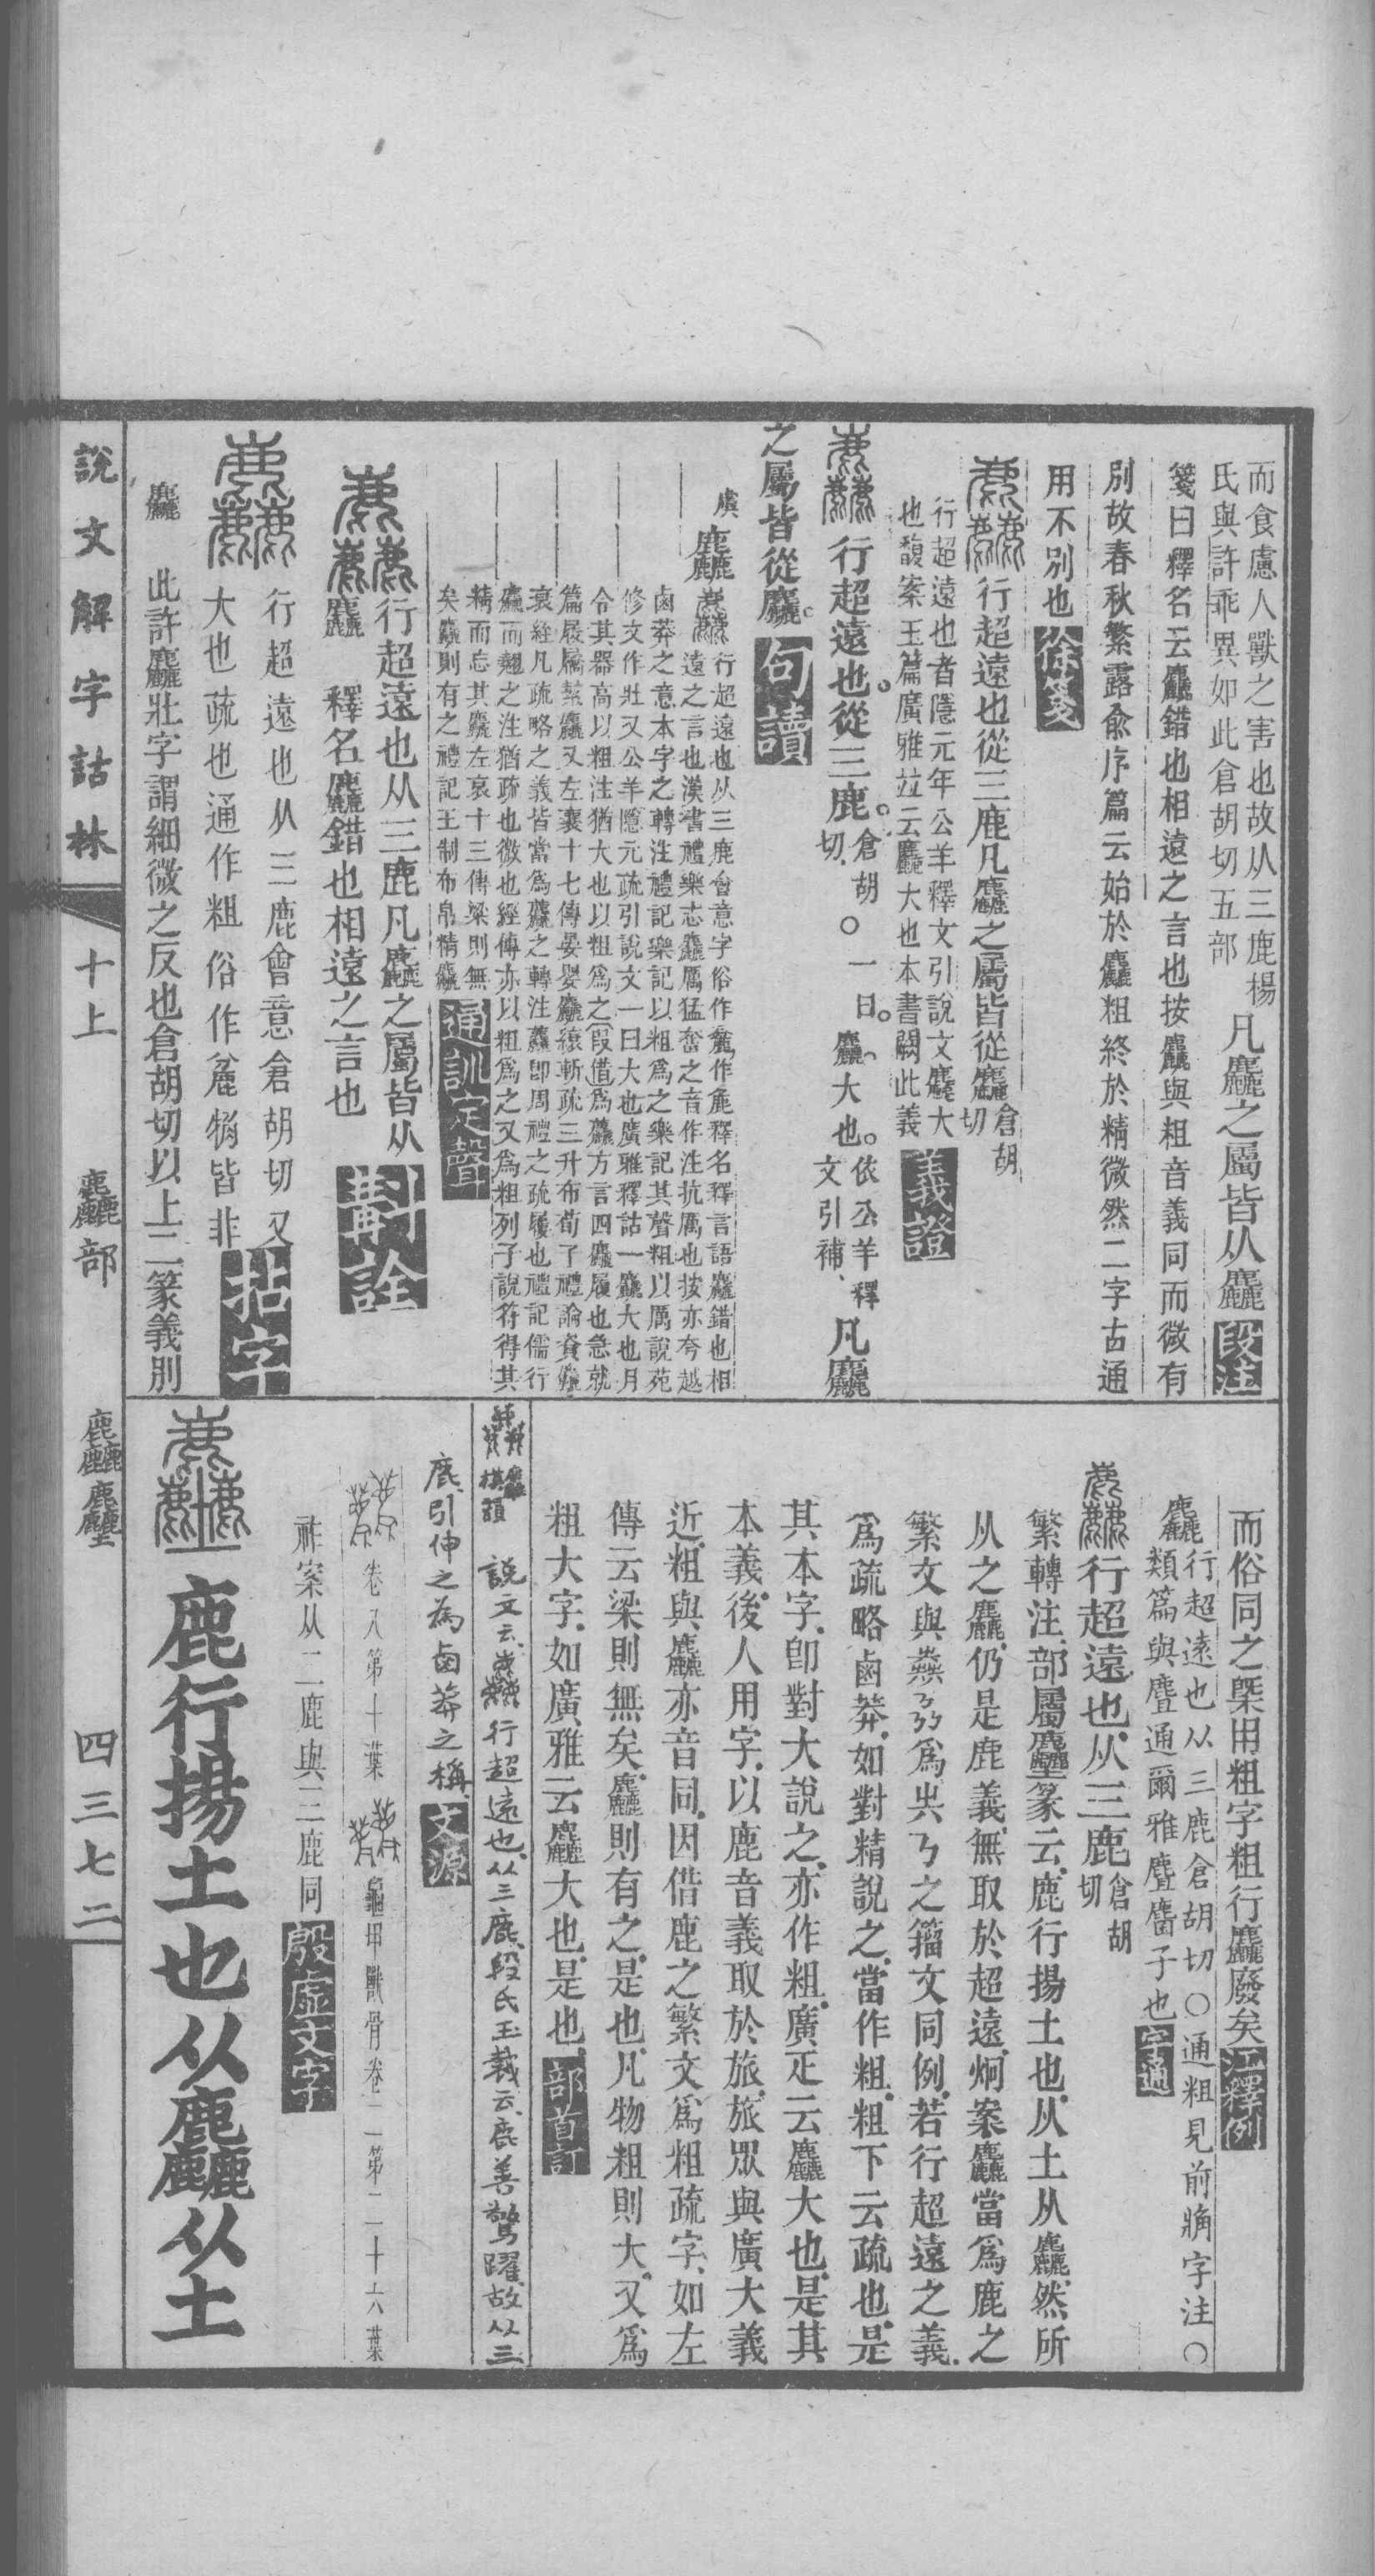 而食慮人獸之害也故从三鹿楊
氏與許乖異如此倉胡切五部
凡麤之屬皆从麤
段注
箋曰釋名云麤錯也相遠之言也按麤與粗音義同而微有
別故春秋繁露俞序篇云始於麤粗終於精微然二字古通
用不別也
徐箋
行超遠也從三鹿凡麤之屬皆從麤倉胡切
行超遠也者隱元年公羊釋文引說文麤大
也馥案玉篇廣雅竝云麤大也本書闕此義
義證
行超遠也從三鹿倉胡切○一曰麤大也依公羊釋文引補凡麤
之屬皆從麤
句讀
麤行超遠也从三鹿會意字俗作麁作觕釋名釋言語麤錯也相
遠之言也漢書禮樂志麤厲猛奮之音作注抗厲也按亦夸越
鹵莽之意本字之轉注禮記樂記以粗爲之樂記其聲粗以厲說苑
修文作壯又公羊隱元疏引說文一曰大也廣雅釋詁一麤大也月
令其器高以粗注猶大也以粗爲之段借爲麤方言四麤履也急就
篇履屩麤又左襄十七傳晏嬰麤縗斬疏三升布荀子禮論資麤
衰絰凡疏略之義皆當爲麤之轉注麤卽周禮之疏屨也禮記儒行
麤而翹之注猶疏也微也經傳亦以粗爲之又爲粗列子說符得其
精而忘其麤左哀十三傳梁則無
矣麤則有之禮記王制布帛精麤
通訓定聲
行超遠也从三鹿凡麤之屬皆从
麤 釋名麤錯也相遠之言也
斠詮
行超遠也从三鹿會意倉胡切又
大也疏也通作粗俗作麁觕皆非
拈字
麤 此許麤壯字謂細微之反也倉胡切以上二篆義別
而俗同之槩用粗字粗行麤廢矣
江釋例
麤行超遠也从三鹿倉胡切○通粗見前觕字注○
類篇與麆通爾雅麆麕子也
字通
行超遠也从三鹿倉胡切
繁轉注部屬麤篆云鹿行揚土也从土从麤然所
从之麤仍是鹿義無取於超遠炯案麤當爲鹿之
繁文與爲之籀文同例若行超遠之義
爲疏略鹵莽如對精說之當作粗粗下云疏也是
其本字卽對大說之亦作粗廣疋云麤大也是其
本義後人用字以鹿音義取於旅旅眾與廣大義
近粗與麤亦音同因借鹿之繁文爲粗疏字如左
傳云梁則無矣麤則有之是也凡物粗則大又爲
粗大字如廣雅云麤大也是也
部首訂
說文云行超遠也从三鹿段氏玉裁云鹿善驚躍故从三
鹿引伸之為鹵莽之稱
文源
卷八第十葉 龜甲獸骨卷二第二十六葉
祚案从二鹿與三鹿同
殷虛文字
鹿行揚土也从麤从土
說文解字詁林
十上
麤部
麤
四三七二